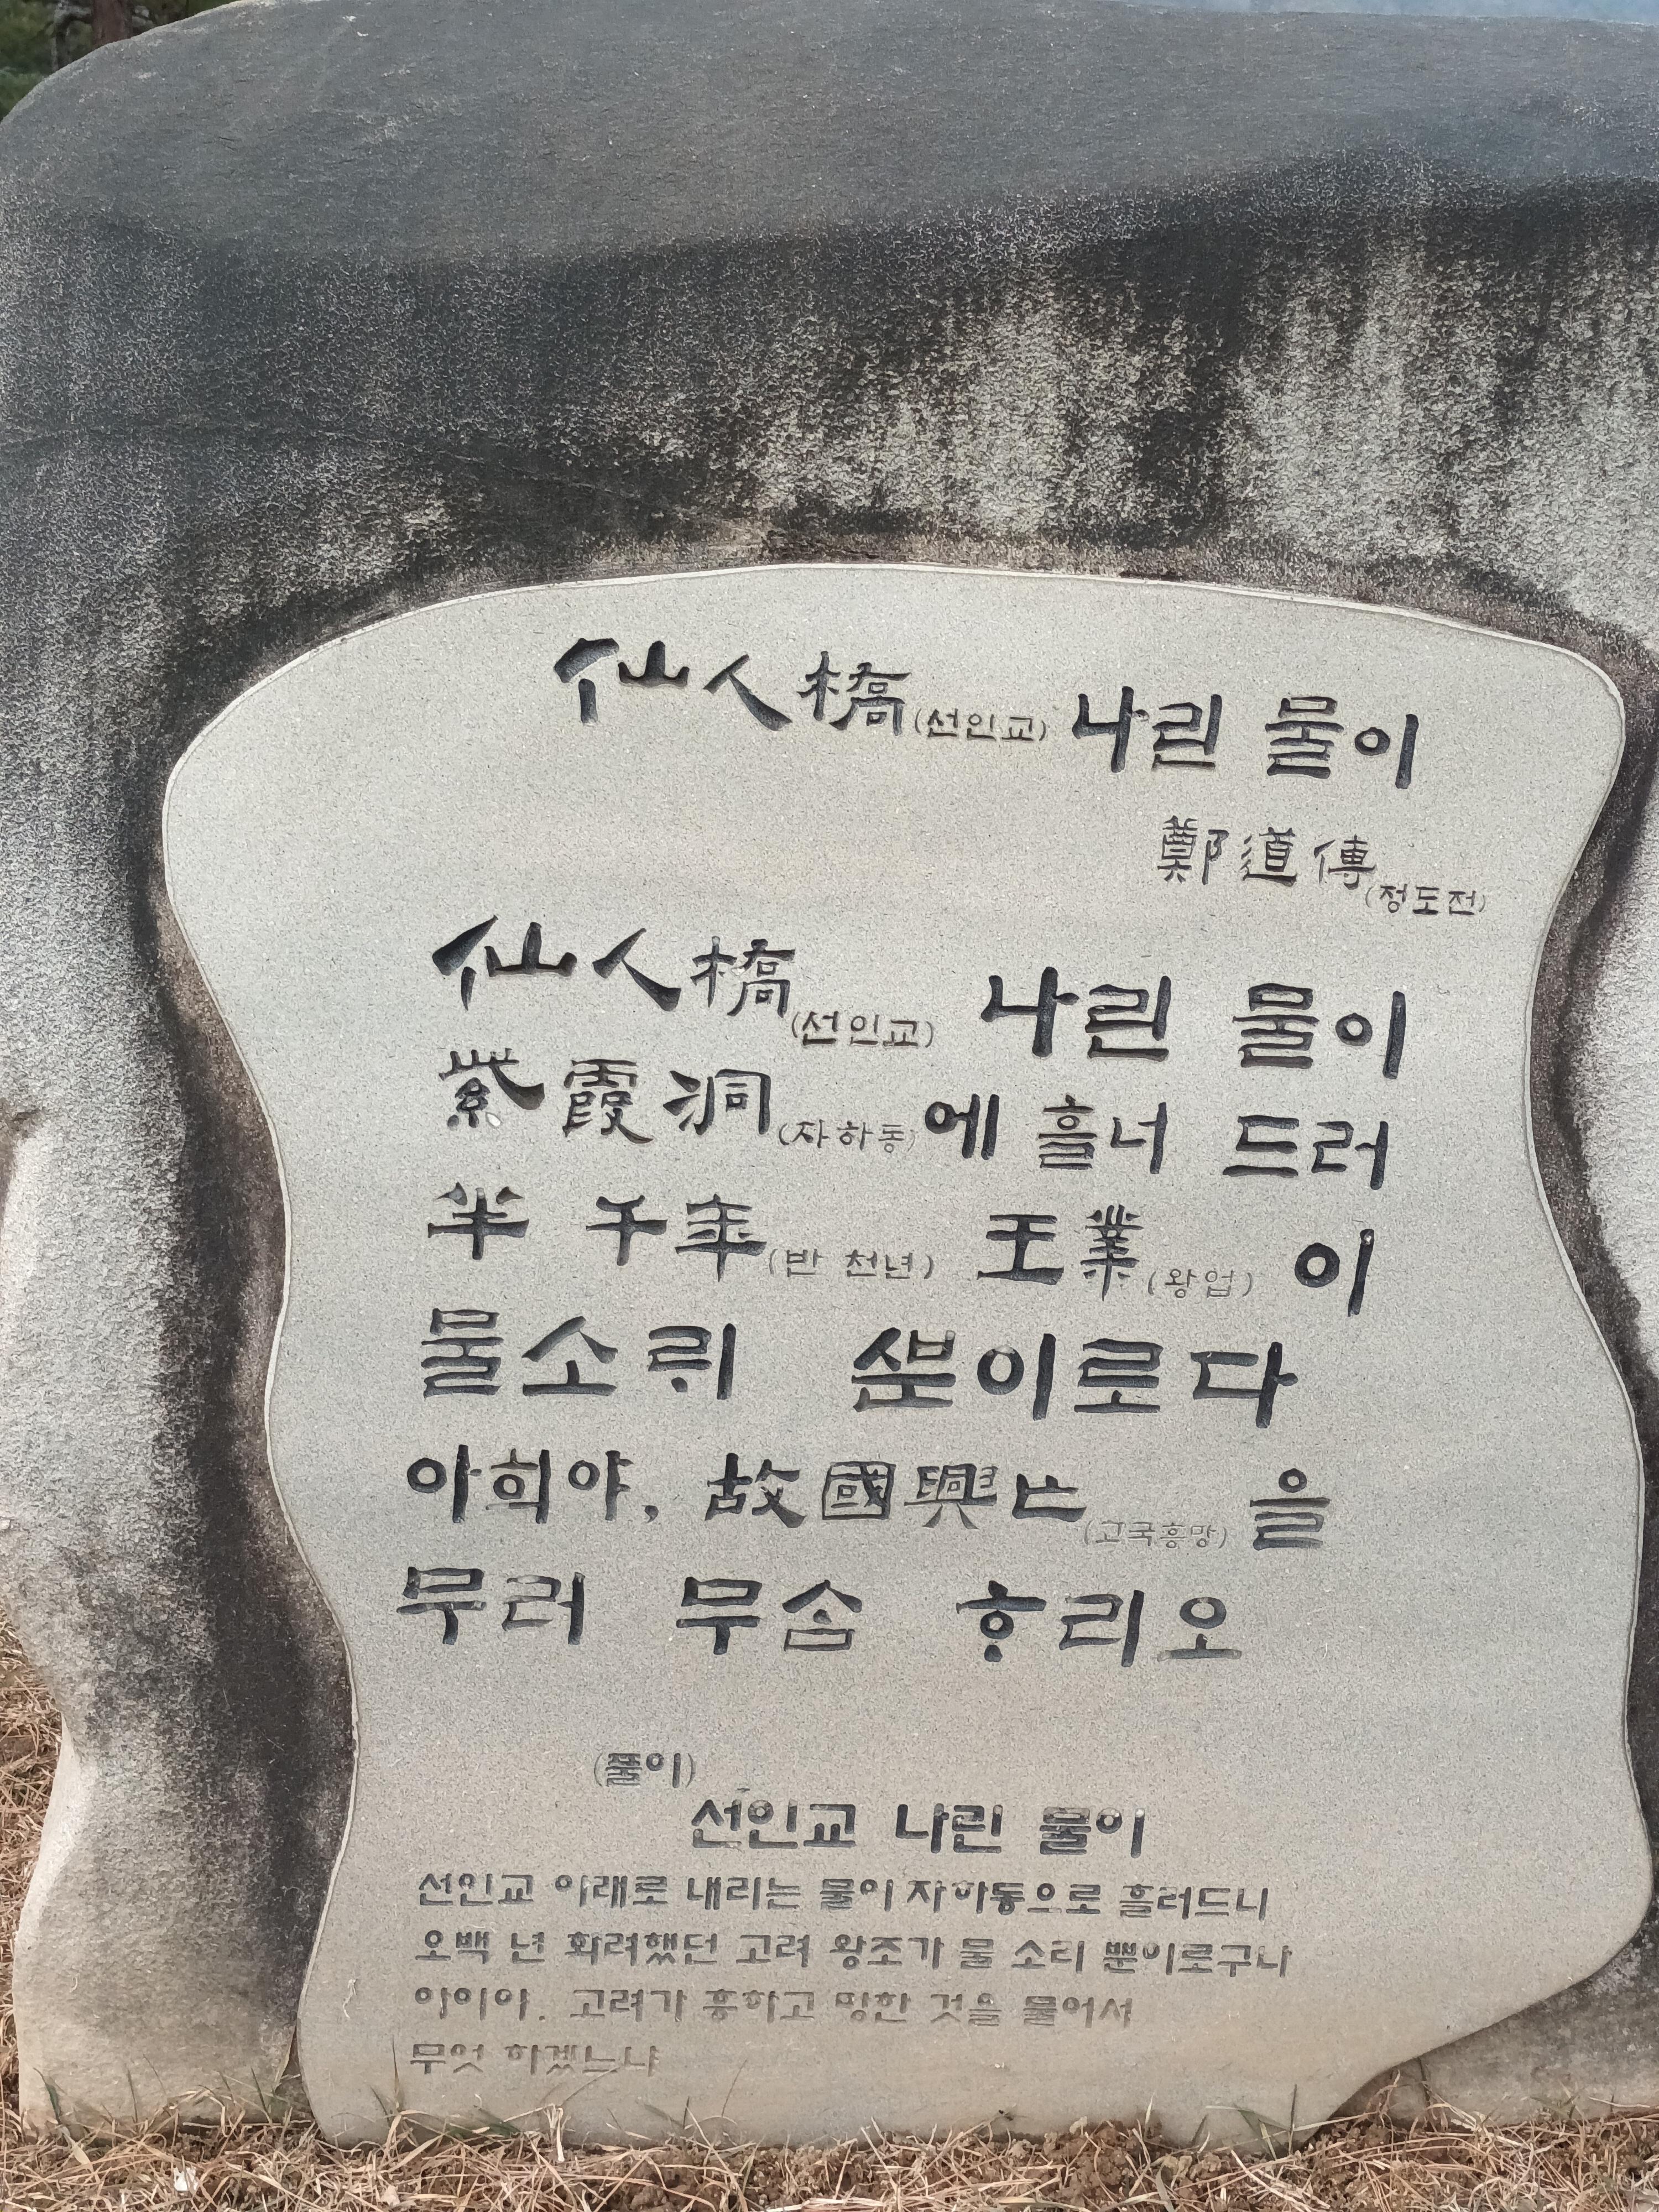 仙人橋(선인교) 나린 물이
鄭道傳(정도전)
仙人橋(선인교) 나린 물이
紫霞洞(자하동)에 흘너 드러
半 千年(반 천년) 王業(왕업) 이
물소ᄅᆡ ᄲᅮᆫ이로다
아희야, 故國興亡(고국흥망) 을
무러 무ᄉᆞᆷ ᄒᆞ리오
(풀이)
선인교 나린 물이
선인교 아래로 내리는 물이 자하동으로 흘러드니
오백 년 화려했던 고려 왕조가 물 소리 뿐이로구나
아이야. 고려가 흥하고 망한 것을 물어서
무엇 하겠느냐